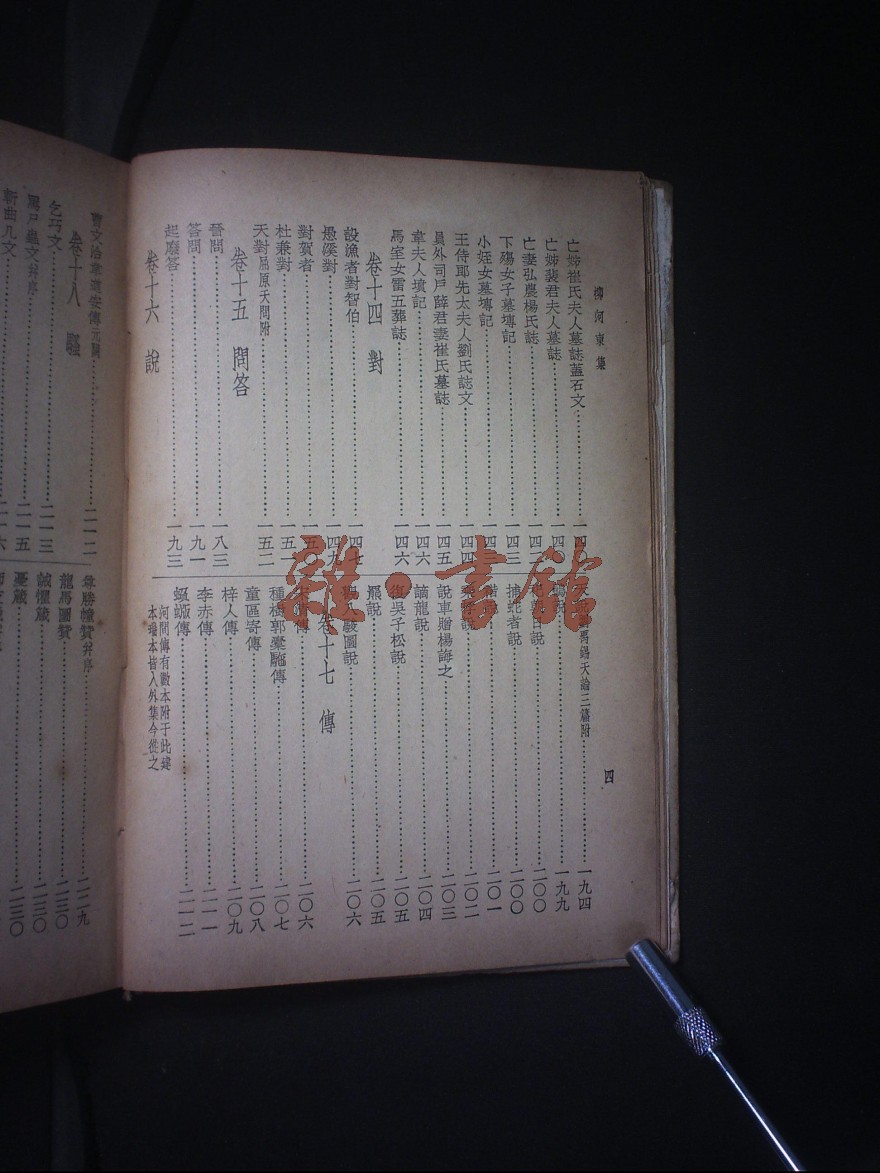 柳河東集
四
亡姊崔氏夫人墓誌蓋石文
亡姊裴君夫人墓誌
亡妻弘農楊氏誌
下殤女子墓塼記
小姪女墓塼記
王侍郎先太夫人劉氏誌文
員外司戶薛君妻崔氏墓誌 一四五
韋夫人墳記 一四六
馬室女雷五葬誌 一四六
卷十四 對
設漁者對智伯 一四七
愚溪對 一四九
對賀者
杜兼對 一五一
天對屈原天問附 一五二
卷十五 問答
晉問 一八三
答問 一九一
起廢答 一九三
卷十六 說
禹錫天論三篇附 一九四
說 一九九
日說 二〇〇
捕蛇者說 二〇〇
說 二〇一
說 二〇二
說車贈楊誨之 二〇三
謫龍說 二〇四
復吳子松說 二〇五
羆說 二〇五
駿圖說 二〇六
卷十七 傳
傳 二〇六
種樹郭橐駝傳 二〇七
童區寄傳 二〇八
梓人傳 二〇九
李赤傳 二一一
蝜蝂傳 二一二
河間傳有數本附于此緯
本瑞本皆入外集今從之
曹文洽韋道安傳元闕 二一二
卷十八 騷
乞巧文 二一三
罵尸蟲文幷序 二一五
斬曲几文 二一六
幢贊幷序 二二九
龍馬圖贊 二三〇
誡懼箴 二三〇
憂箴 二三〇
雜·書館